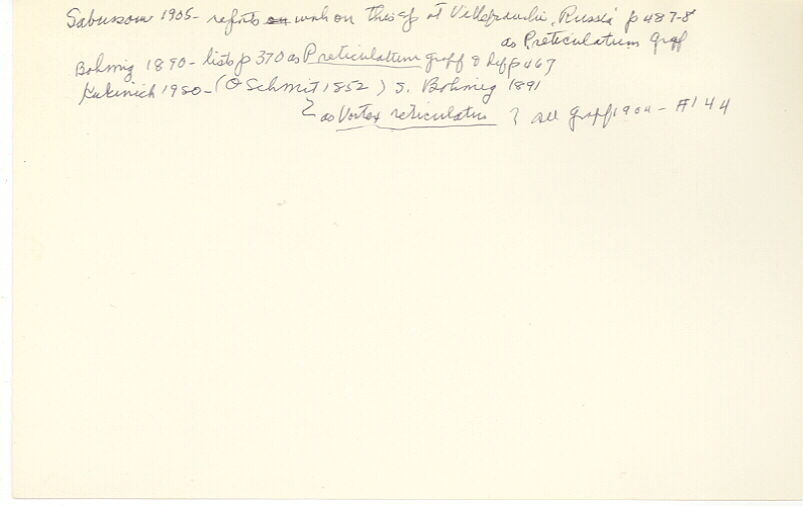 Sabussow 1905 - reports work on this sp at Villefranche, Russia p 487-8
as P reticulatum Graff
Bohmig 1890 - lists p 370 as P reticulatum graff & p 467
1950 - (O Schmit 1852) s. Bohmig 1891
as Vortex reticulatus see graff 1904 - #144